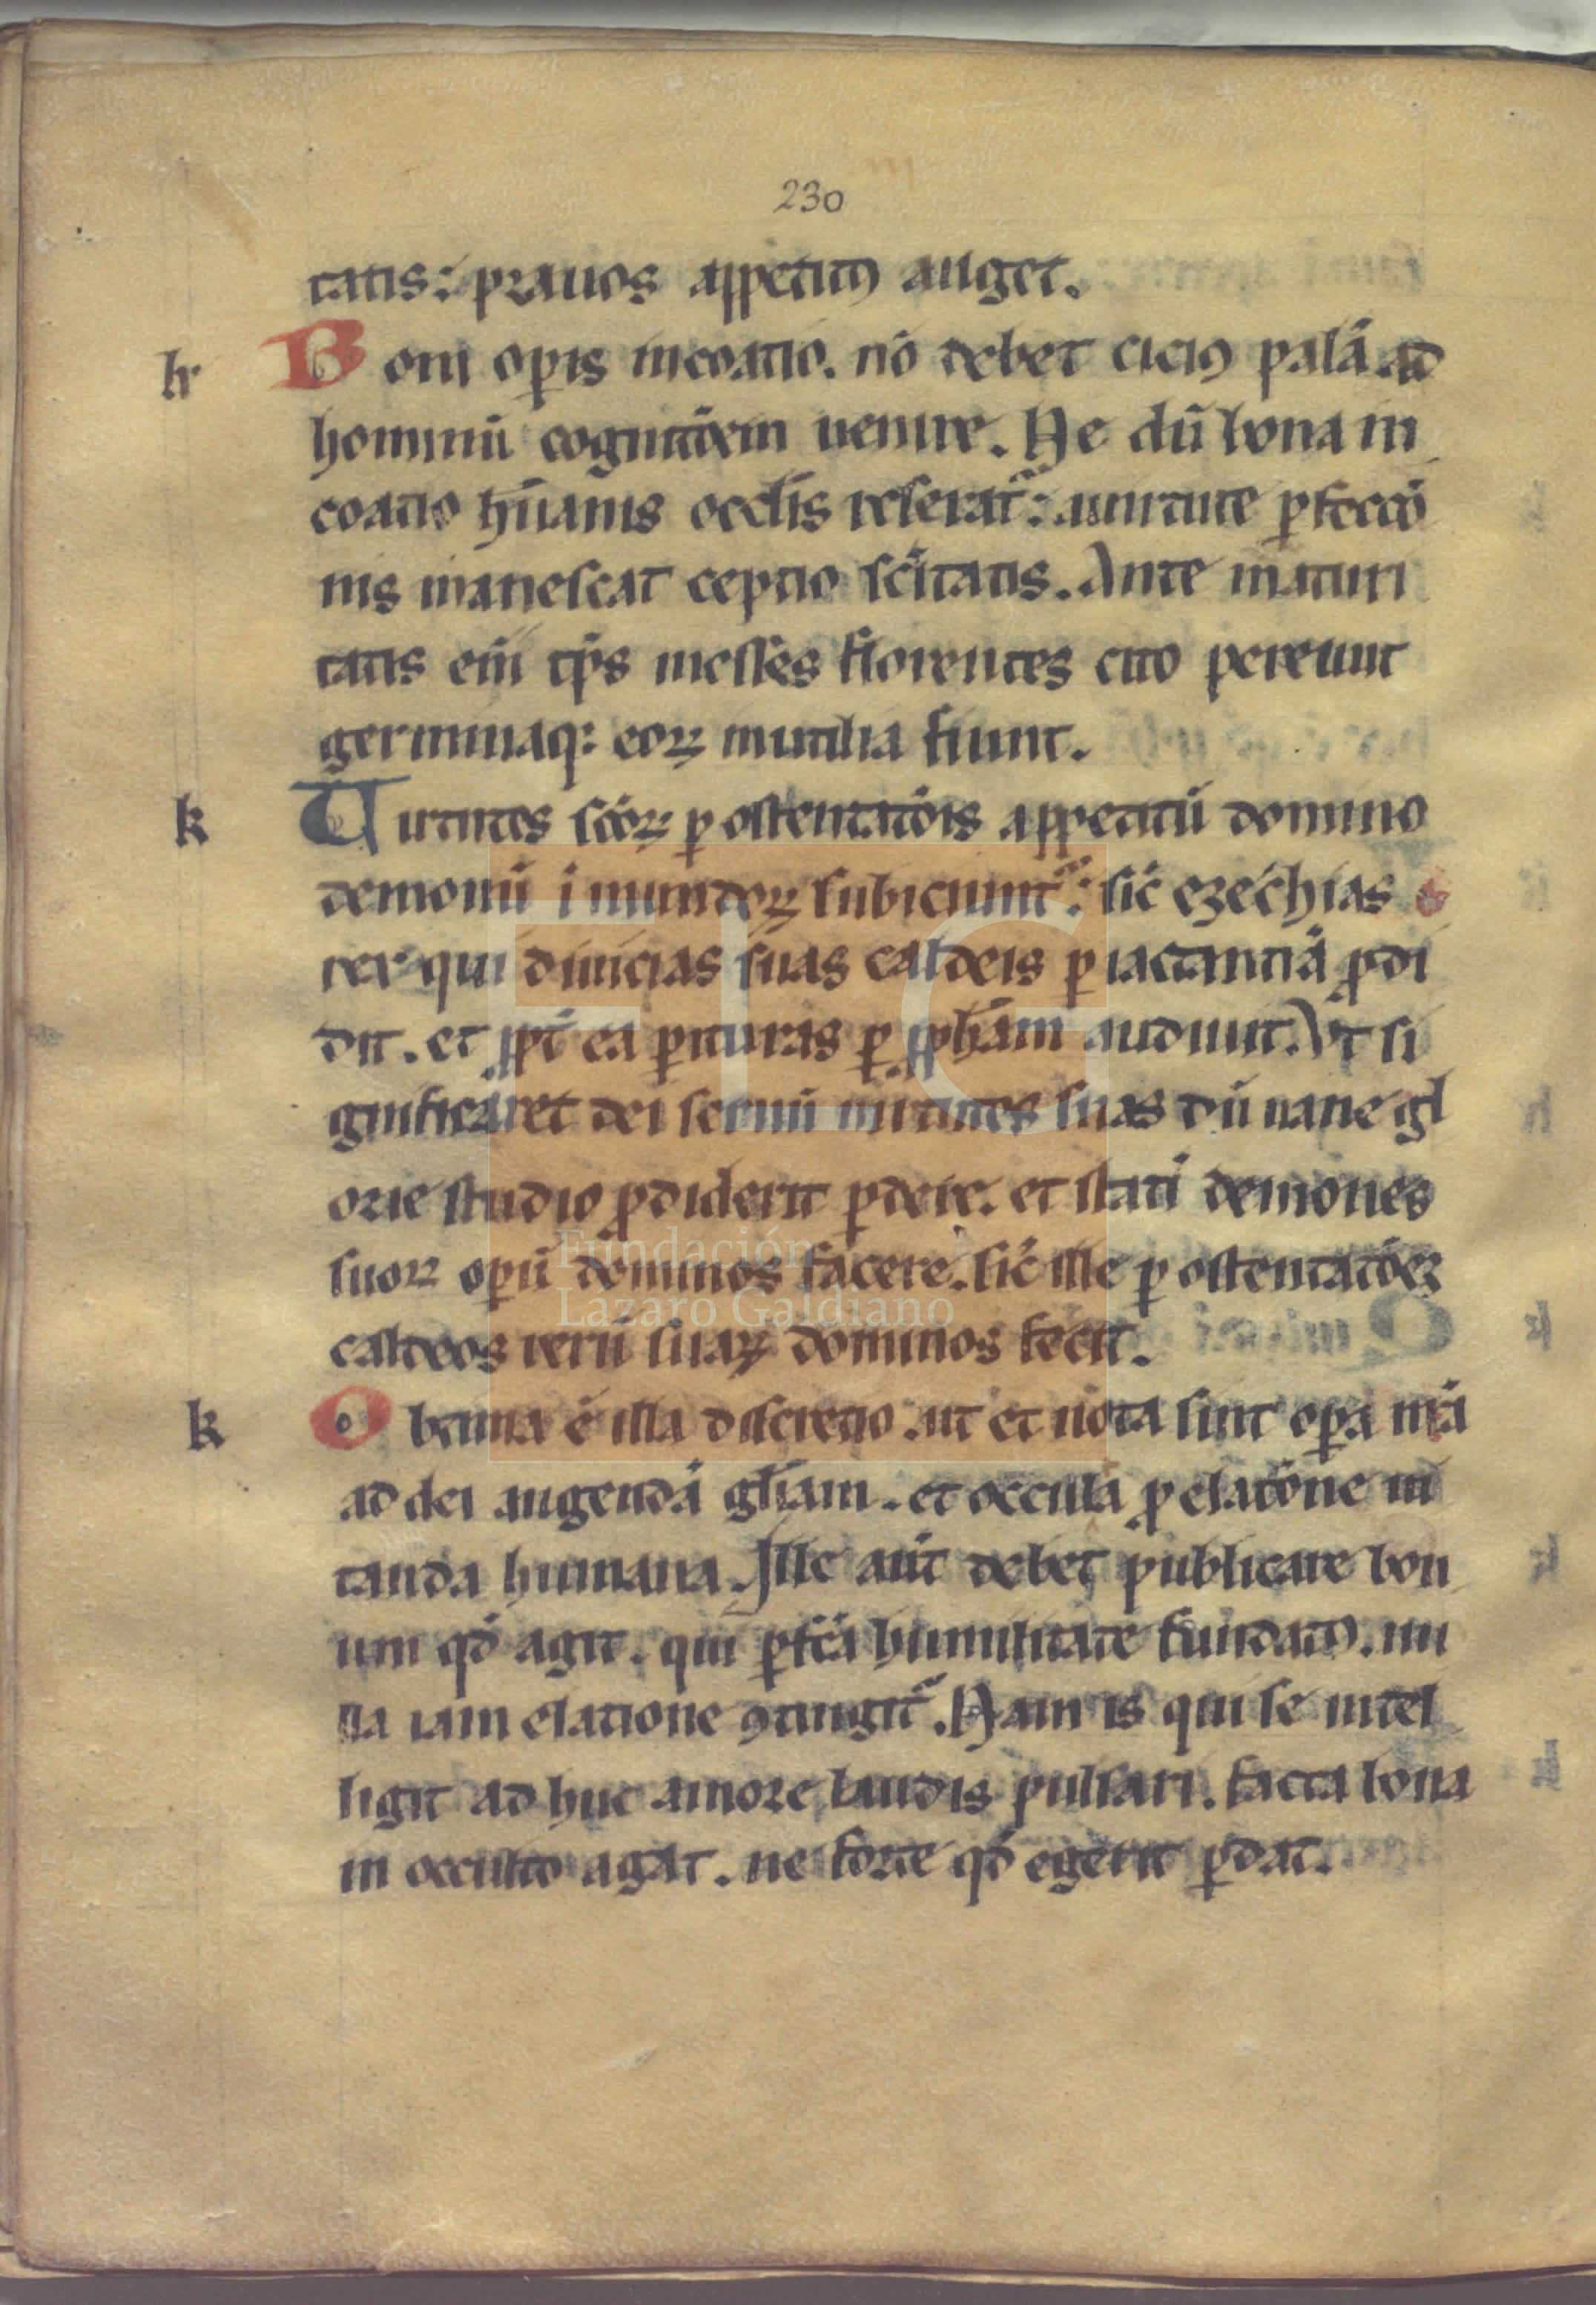 230
tatis: prauos appetitꝯ auget.
h Boni opis incoatio. nō debet ciciꝯ palā ad
hominū cognitōem uenire. Ne dū bona in
coatio hūanis oculis referat᷑: a uirtute ꝑfecciō
nis inanescat ceptio scītatis. Ante maturi
tatis eīm tp̄s messes florentes cito pereunt
germinaq: eoꝝ inutilia fiunt.
k Uirtutes scōꝝ ꝑ ostentatōis appetitū domino
demonū īmundoꝝ subiciunt᷑: sic̄ ezechias
rex qui diuicias suas caldeis ꝑ iactantiā ꝓdi
dit. et ꝓpt̄ ea ꝑituras ꝑ ꝓph̄am audiuit. Vt si
gnificaret dei seruū uirtutes suas dū uane gl
orie studio ꝓdiderit ꝑdere. et statī demones
suoꝝ opū dominos facere. sic̄ ille ꝑ ostentatōeꝫ
caldeos rerū suaꝝ dominos fecit.
k Obtima ē illa discretio. ut et nota sint opa nr̄a
ad dei augendā gl̄iam. et occulta ꝓ elatōne ui
tanda humana. Ille aūt debet publicare bon
um qd̄ agit. qui ꝑfc̄a humilitate fundatꝯ. nu
lla iam elatione ꝯtingit᷑. Nam is qui se intel
ligit ad huc amore laudis pulsari. facta bona
in occulto agat. ne forte qd̄ egerit ꝑdat.
FLG
Fundación
Lázaro Galdiano